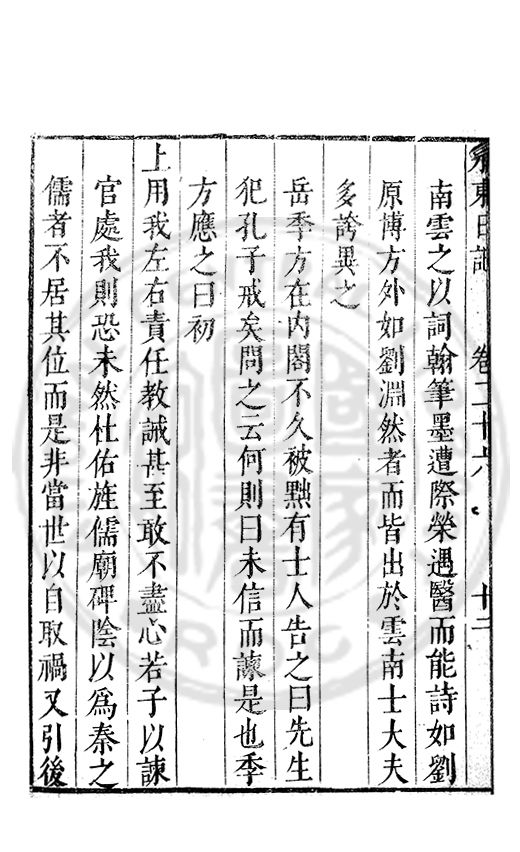 水東日記 卷二十六 十二
南雲之以詞翰筆墨遭際榮遇醫而能詩如劉
原博方外如劉淵然者而皆出於雲南士大夫
多誇異之
岳季方在內閣不久被黜有士人告之曰先生
犯孔子戒矣問之云何則曰未信而諫是也季
方應之曰初
上用我左右責任教誡甚至敢不盡心若子以諫
官處我則恐未然杜佑旌儒廟碑陰以爲秦之
儒者不居其位而是非當世以自取禍又引後